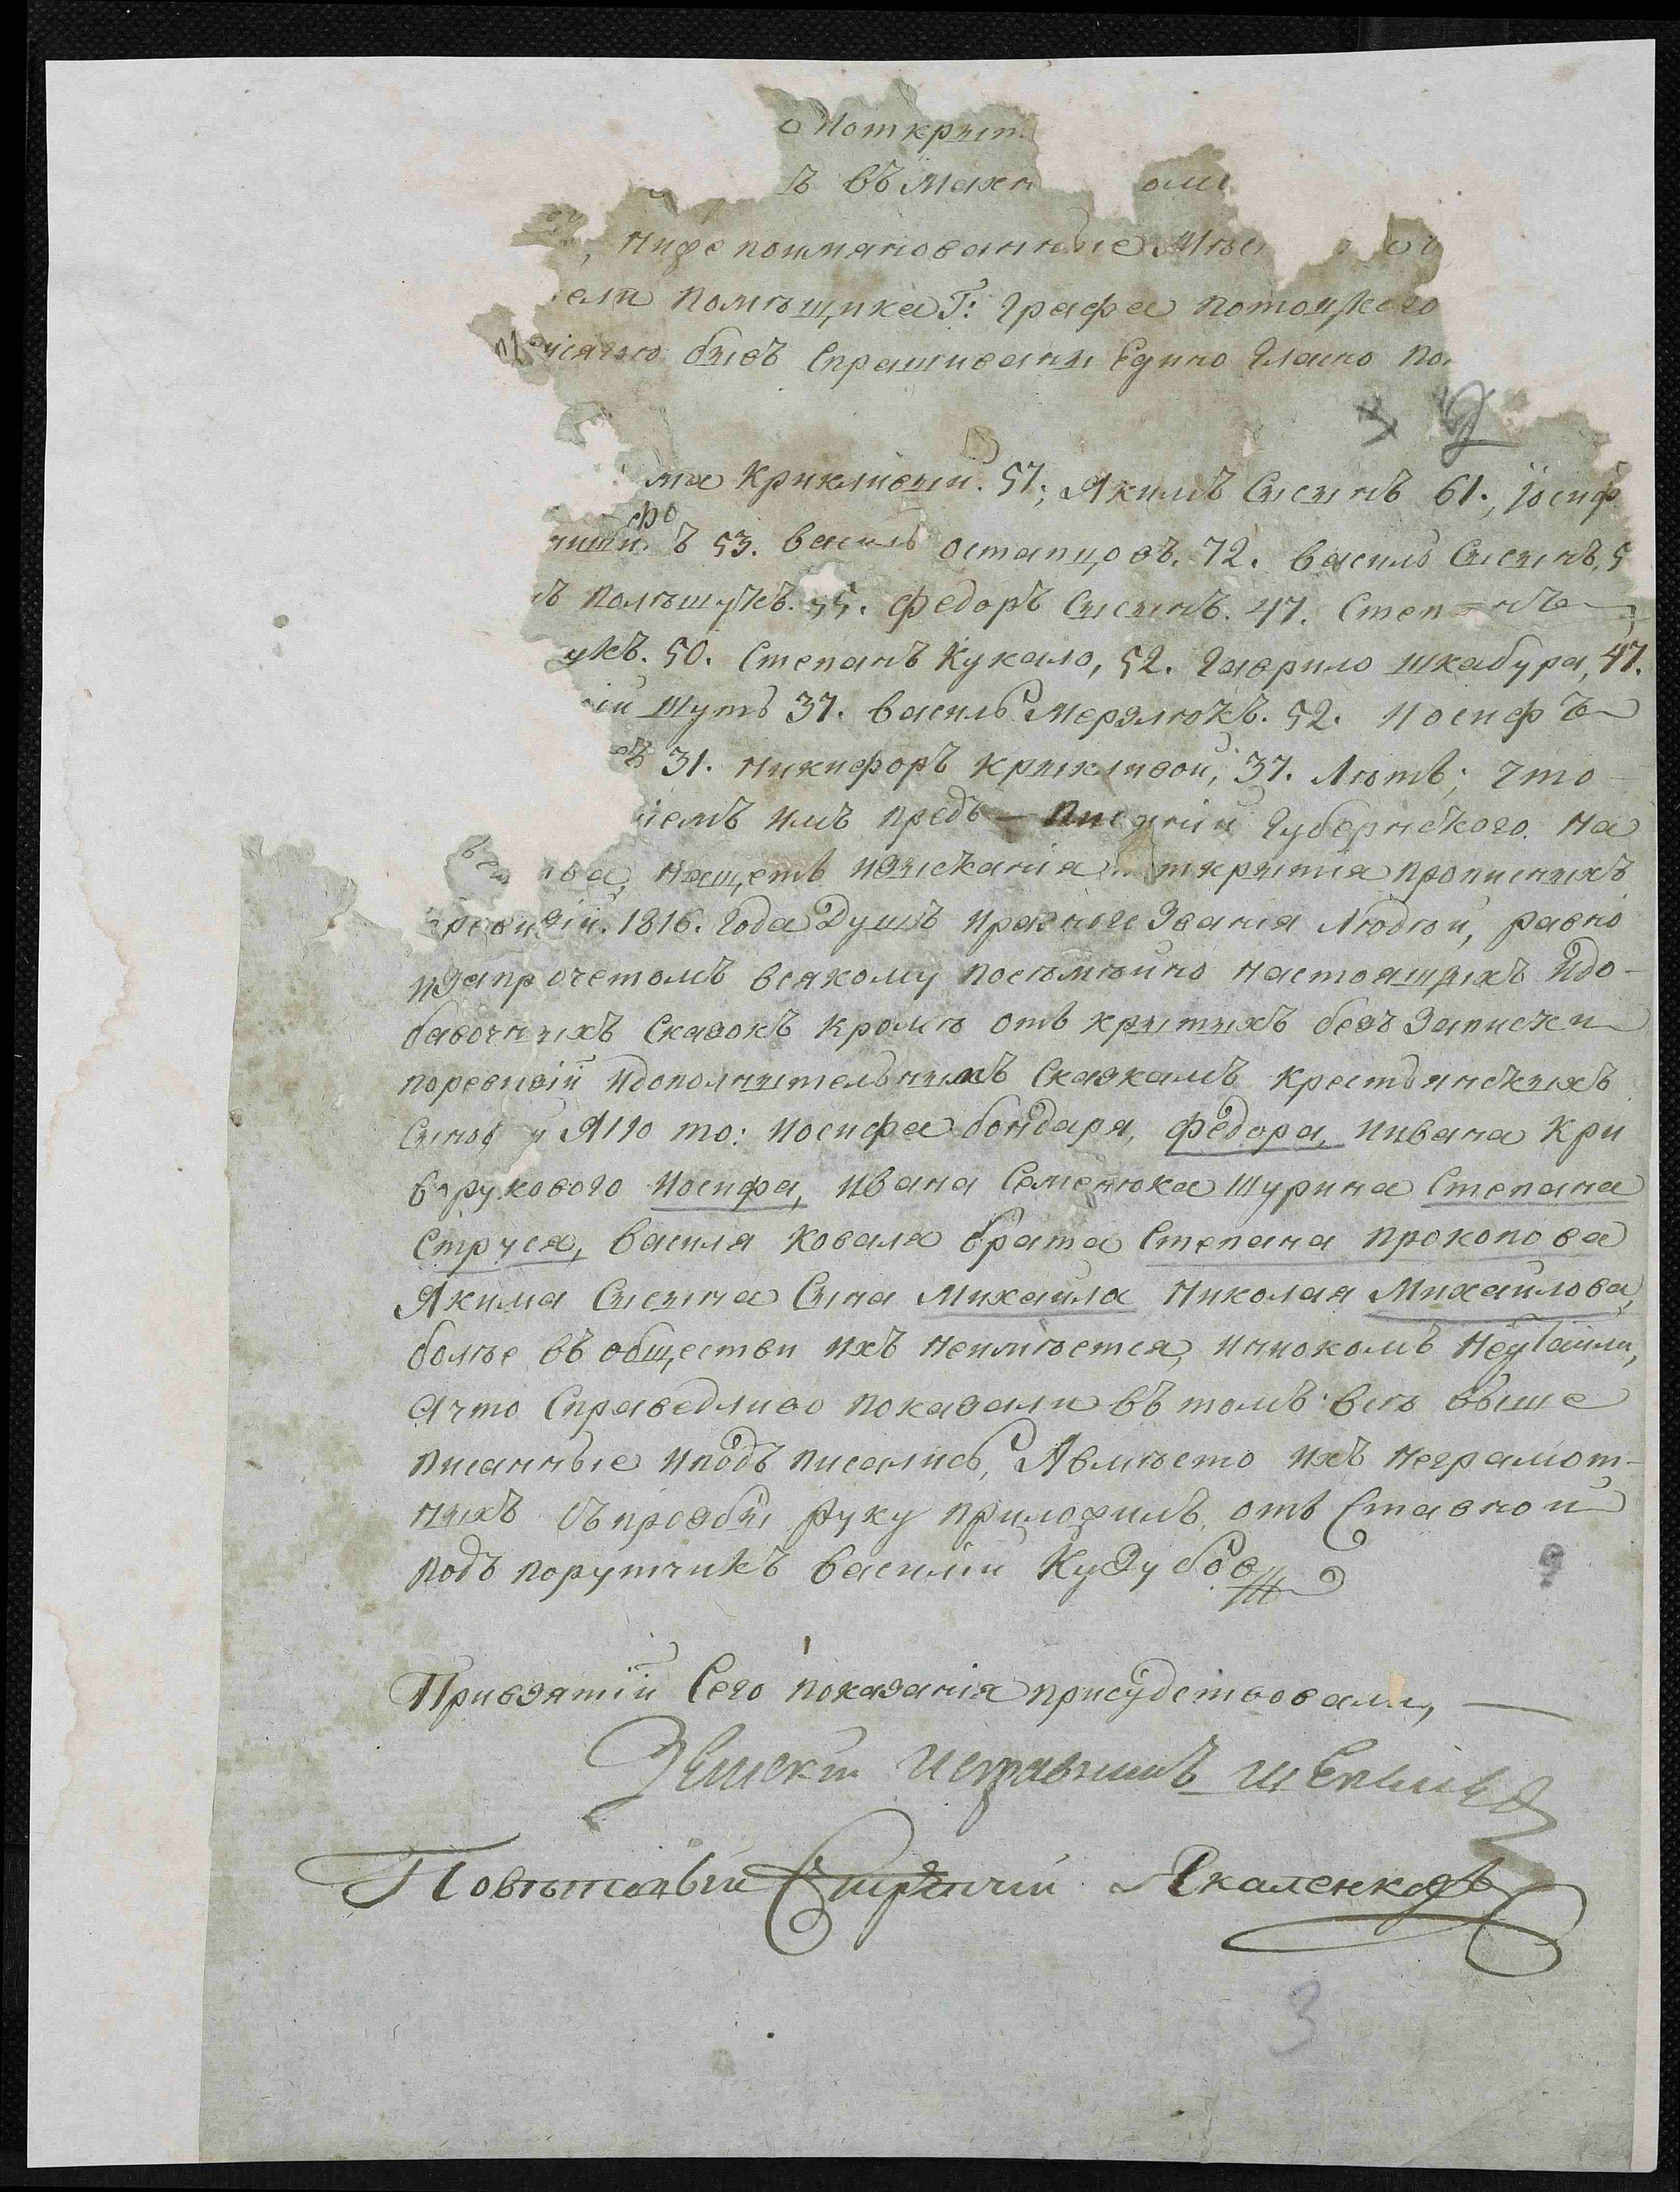 о Поткрыт
ъ въ Махн оми
Ниже поимянованные
помѣщика Г: Графа Потоцкого
присягою бывъ Спрашиваны Едино Гласно по
ма Крикливый. 57; Якимъ Сысынъ 61., Іосиф
ъ 53. василь остапцовъ. 72. василь Сысынъ, 5
ъ Полѣшукъ. 55. Федоръ Сысынъ. 47. Степ нъ
укъ. 50. Степанъ Кукало, 52. Гаврило шкабура, 47.
ій Шутъ 37. василь Мерзлюкъ. 52. Іосифъ
въ 31. Никифоръ крыкливой, 37. Лѣтъ; что
іемъ имъ предъ — Писаніи Губернского. На
ва, Нащетъ изыскания открытія прописныхъ
ревизіи. 1816. Года Душъ Празного Званія Людѣй, равно
изапрочетомъ всякому посѣмѣйно настоящихъ Идо-
бавочныхъ Сказокъ кромѣ отъ крытыхъ безъ Записки
поревизіи Идополнытельнымъ Сказкамъ крестьянскихъ
Сынов и Яко то: Иосифа бондаря, Федора, Иивана Кри
ворукового Иосифа, Ивана Семенюка Шурина Степана
Струся, василя коваля брата Степана прокопова
Якима Сысына Сына Михаила Николая Михаилова,
болѣе въ обществи ихъ Неимѣется, иникомъ Неутаили,
Ачто Справедливо показали въ томъ всѣ выше
писанные иподъ писались, Авмѣсто ихъ Неграмот-
ныхъ Съпрозбы Руку приложилъ отъ Ставной
подъ порутчикъ василій Кузубов
Привзятіи Сего показанія присудствовали, —
Земскии Исправникъ
Повѣтовый Стряпчій Якаленковъ
3